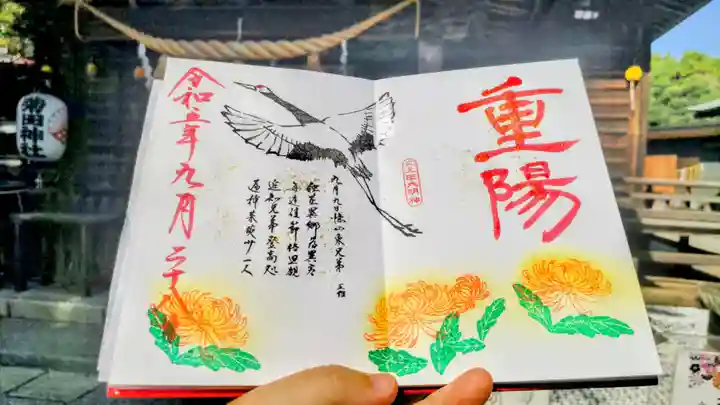 重陽
大明神
九月九日憶山東兄弟 王維
独在異郷為異客
毎逢佳節倍思親
遥知兄弟登高処
遍挿茱萸少一人
令和五年九月二十
菊田神社